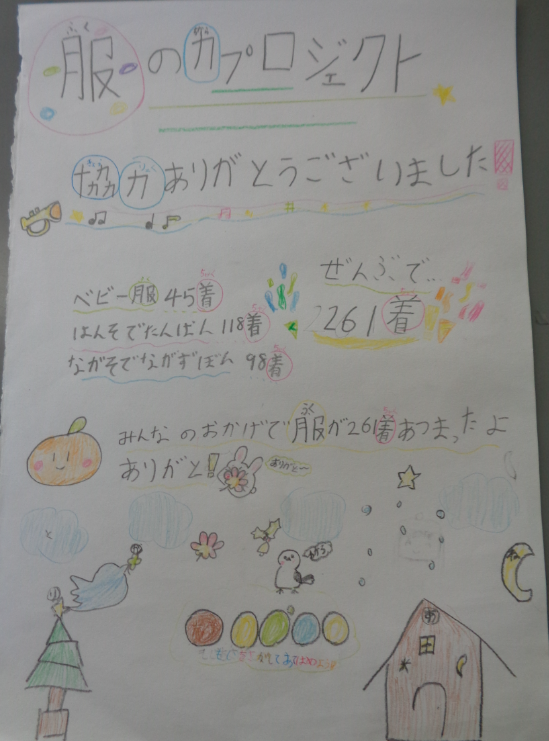 服の力プロジェクト
ふく
協力ありがとうございました
ベビー服 45着
はんそでたんぱん 118着
ながそでながずぼん 98着
ぜんぶで…
261着
みんなのおかげで服が261着あつまったよ
ふく
ありがと!
ありがとー